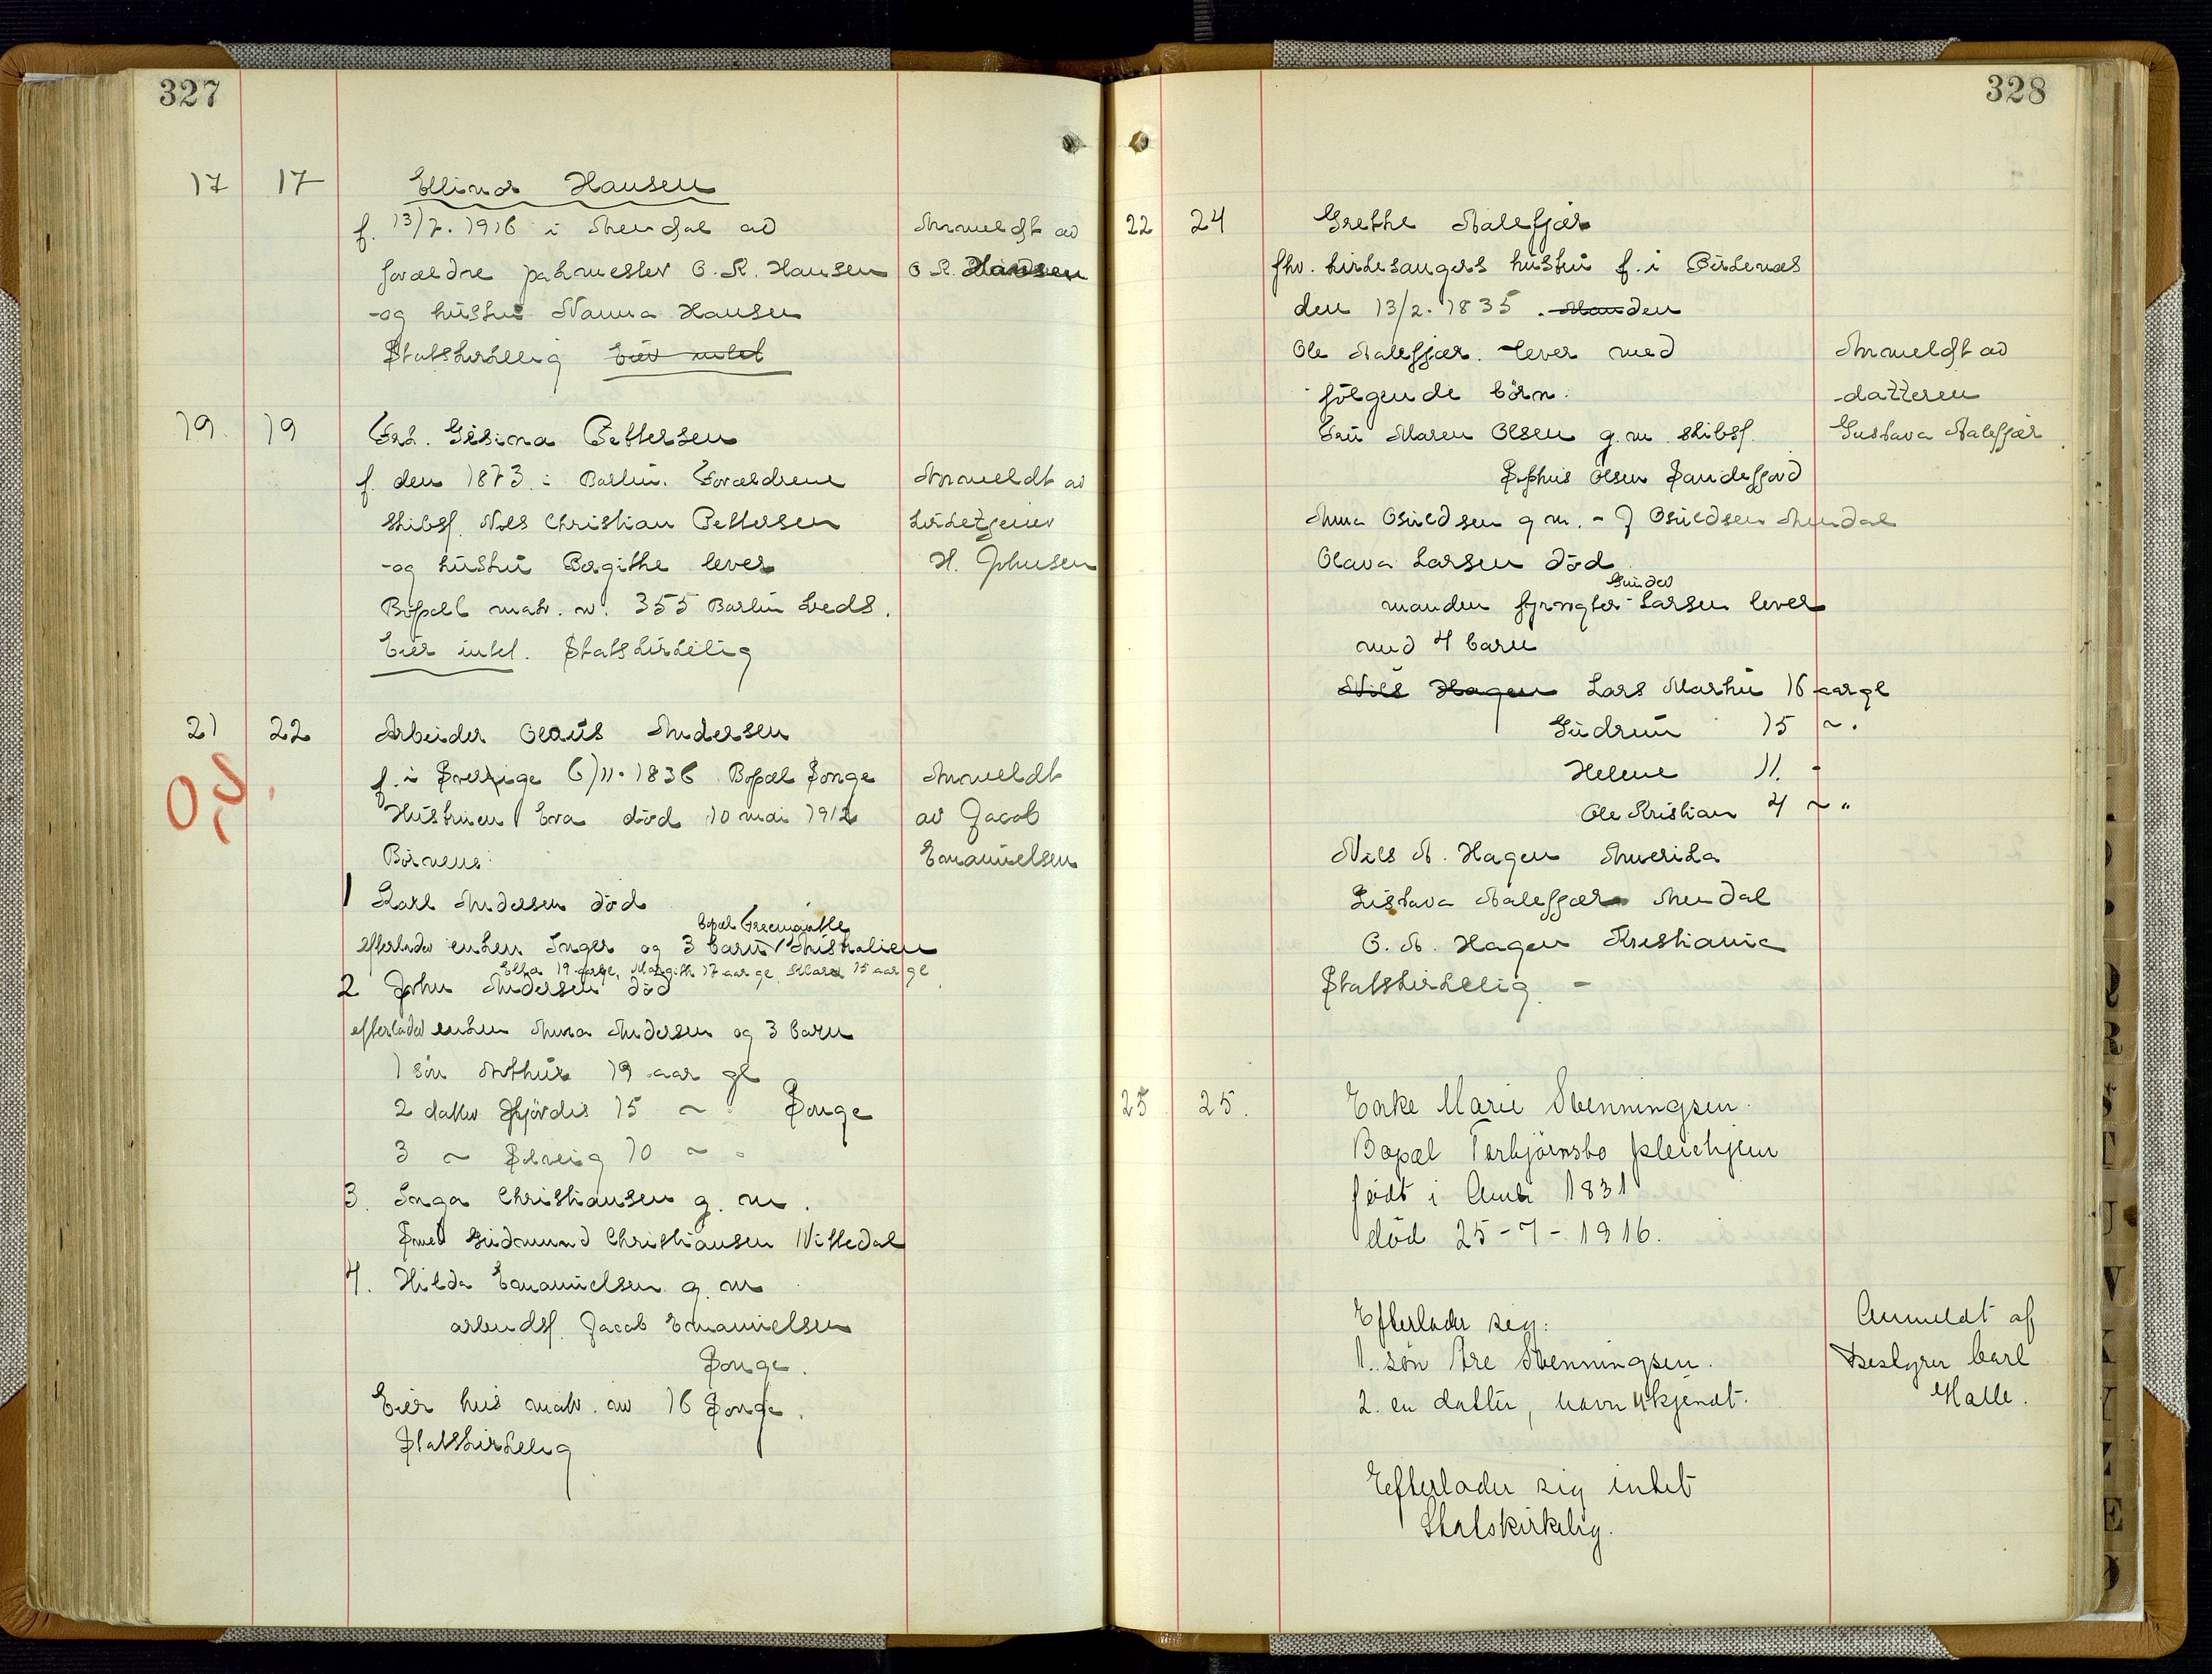 327
17 17 Ellinor Hansen
f. 13/7. 1916 i Arendal av Anmeldt av
forældre pakmester O. K. Hansen O K. Hansen
og hustru Nanna Hansen
Statskirkelig Eier intet
19. 19 Frk. Gesina Pettersen
f. den 1873 i Barbu. Forældrene Anmeldt av
skibsf. Nils Christian Pettersen kirketjener
og hustru Bergithe lever H. Johnsen
Bopæl matr. nr. 355 Barbu kreds.
Eier intet. Statskirkelig
21 22 Arbeider Olaus Andersen
f. i Sverige 6/11. 1836 Bopæl Songe Anmeldt
Hustruen Eva død 10 mai 1912 av Jacob
Børnene: Emanuelsen
1 Karl Andersen død
bopæl Freemantle
efterlader enken Inger og 3 barn Australien
Ella 19 aar gl, Margith 17 aar gl. 15 aar gl
2 John Andersen død
efterlader enken Anna Andersen og 3 barn
1 søn Arthur 19 aar gl
2 datter Hjördis 15 ~ " Songe
3 ~ Solveig 10 ~ "
3. Inga Christiansen g. m.
Smed Gudmund Christiansen Nittedal
4. Hilda Emanuelsen g. m
arbeidsf. Jacob Emanuelsen
Songe.
Eier hus matr. nr 16 Songe.
Statskirkelig
328
22 24 Grethe Aalefjær
fhv. kirkesangers hustru f. i Birkenæs
den 13/2. 1835. Manden
Ole Aalefjær. lever med Anmeldt av
følgende börn: datteren
Fru Maren Olsen g. m. skibsf. Gustava Aalefjær
Sophus Olsen Sandefjord
Anna Osuldsen g m. - J Osuldsen Arendal
Olava Larsen död
Gunder
manden fyrvogter Larsen lever
med 4 barn
Nils Hagen Lars Martin 16 aar gl
Gudrun 15 ~ "
Helene 11 "
Ole Kristian 4 ~ "
Nils A. Hagen Amerika
Gustava Aalefjær Arendal
O. A. Hagen Kristiania
Statskirkelig. -
25 25. Enke Marie Svenningsen.
Bopæl Torbjørnsbo pleiehjem
født i Amli 1831
død 25-7-1916.
Efterlader sig: Anmeldt af
1. søn Are Svenningsen. Bestyrer Carl
2. en datter, navn ukjendt. Halle.
Efterlader sig intet
Statskirkelig.